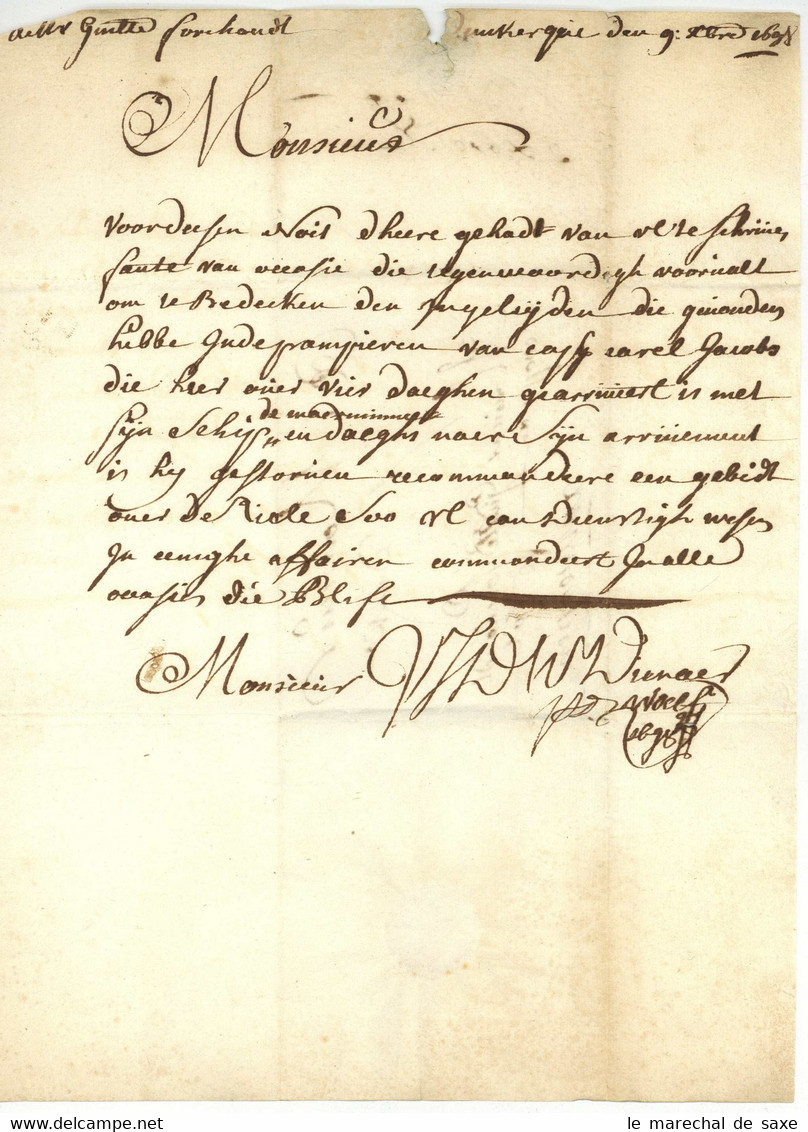 Guilte forchoudt unkerque den 9: Xbre 1698
Monsieur
voordesen Noit d heere gehadt van vl te schriuen
faute van occasie die tegenwoordigh voorualt
om te Bedecken den Ingeleyden die geuonden
hebbe Inde pampieren van carel Jacobs
die hier ouer vier daeghen gearriueert is met
de
sijn Schip en daeghs naer Sijn arriuement
is hy gestoruen recommandeere een gebedt
ouer De Ziele Soo vl can dienstigh wesen
In eenighe affairen commandeert In alle
occasie die Blijfe
Monsieur VL D W Dienaer
1698
le marechal de saxe